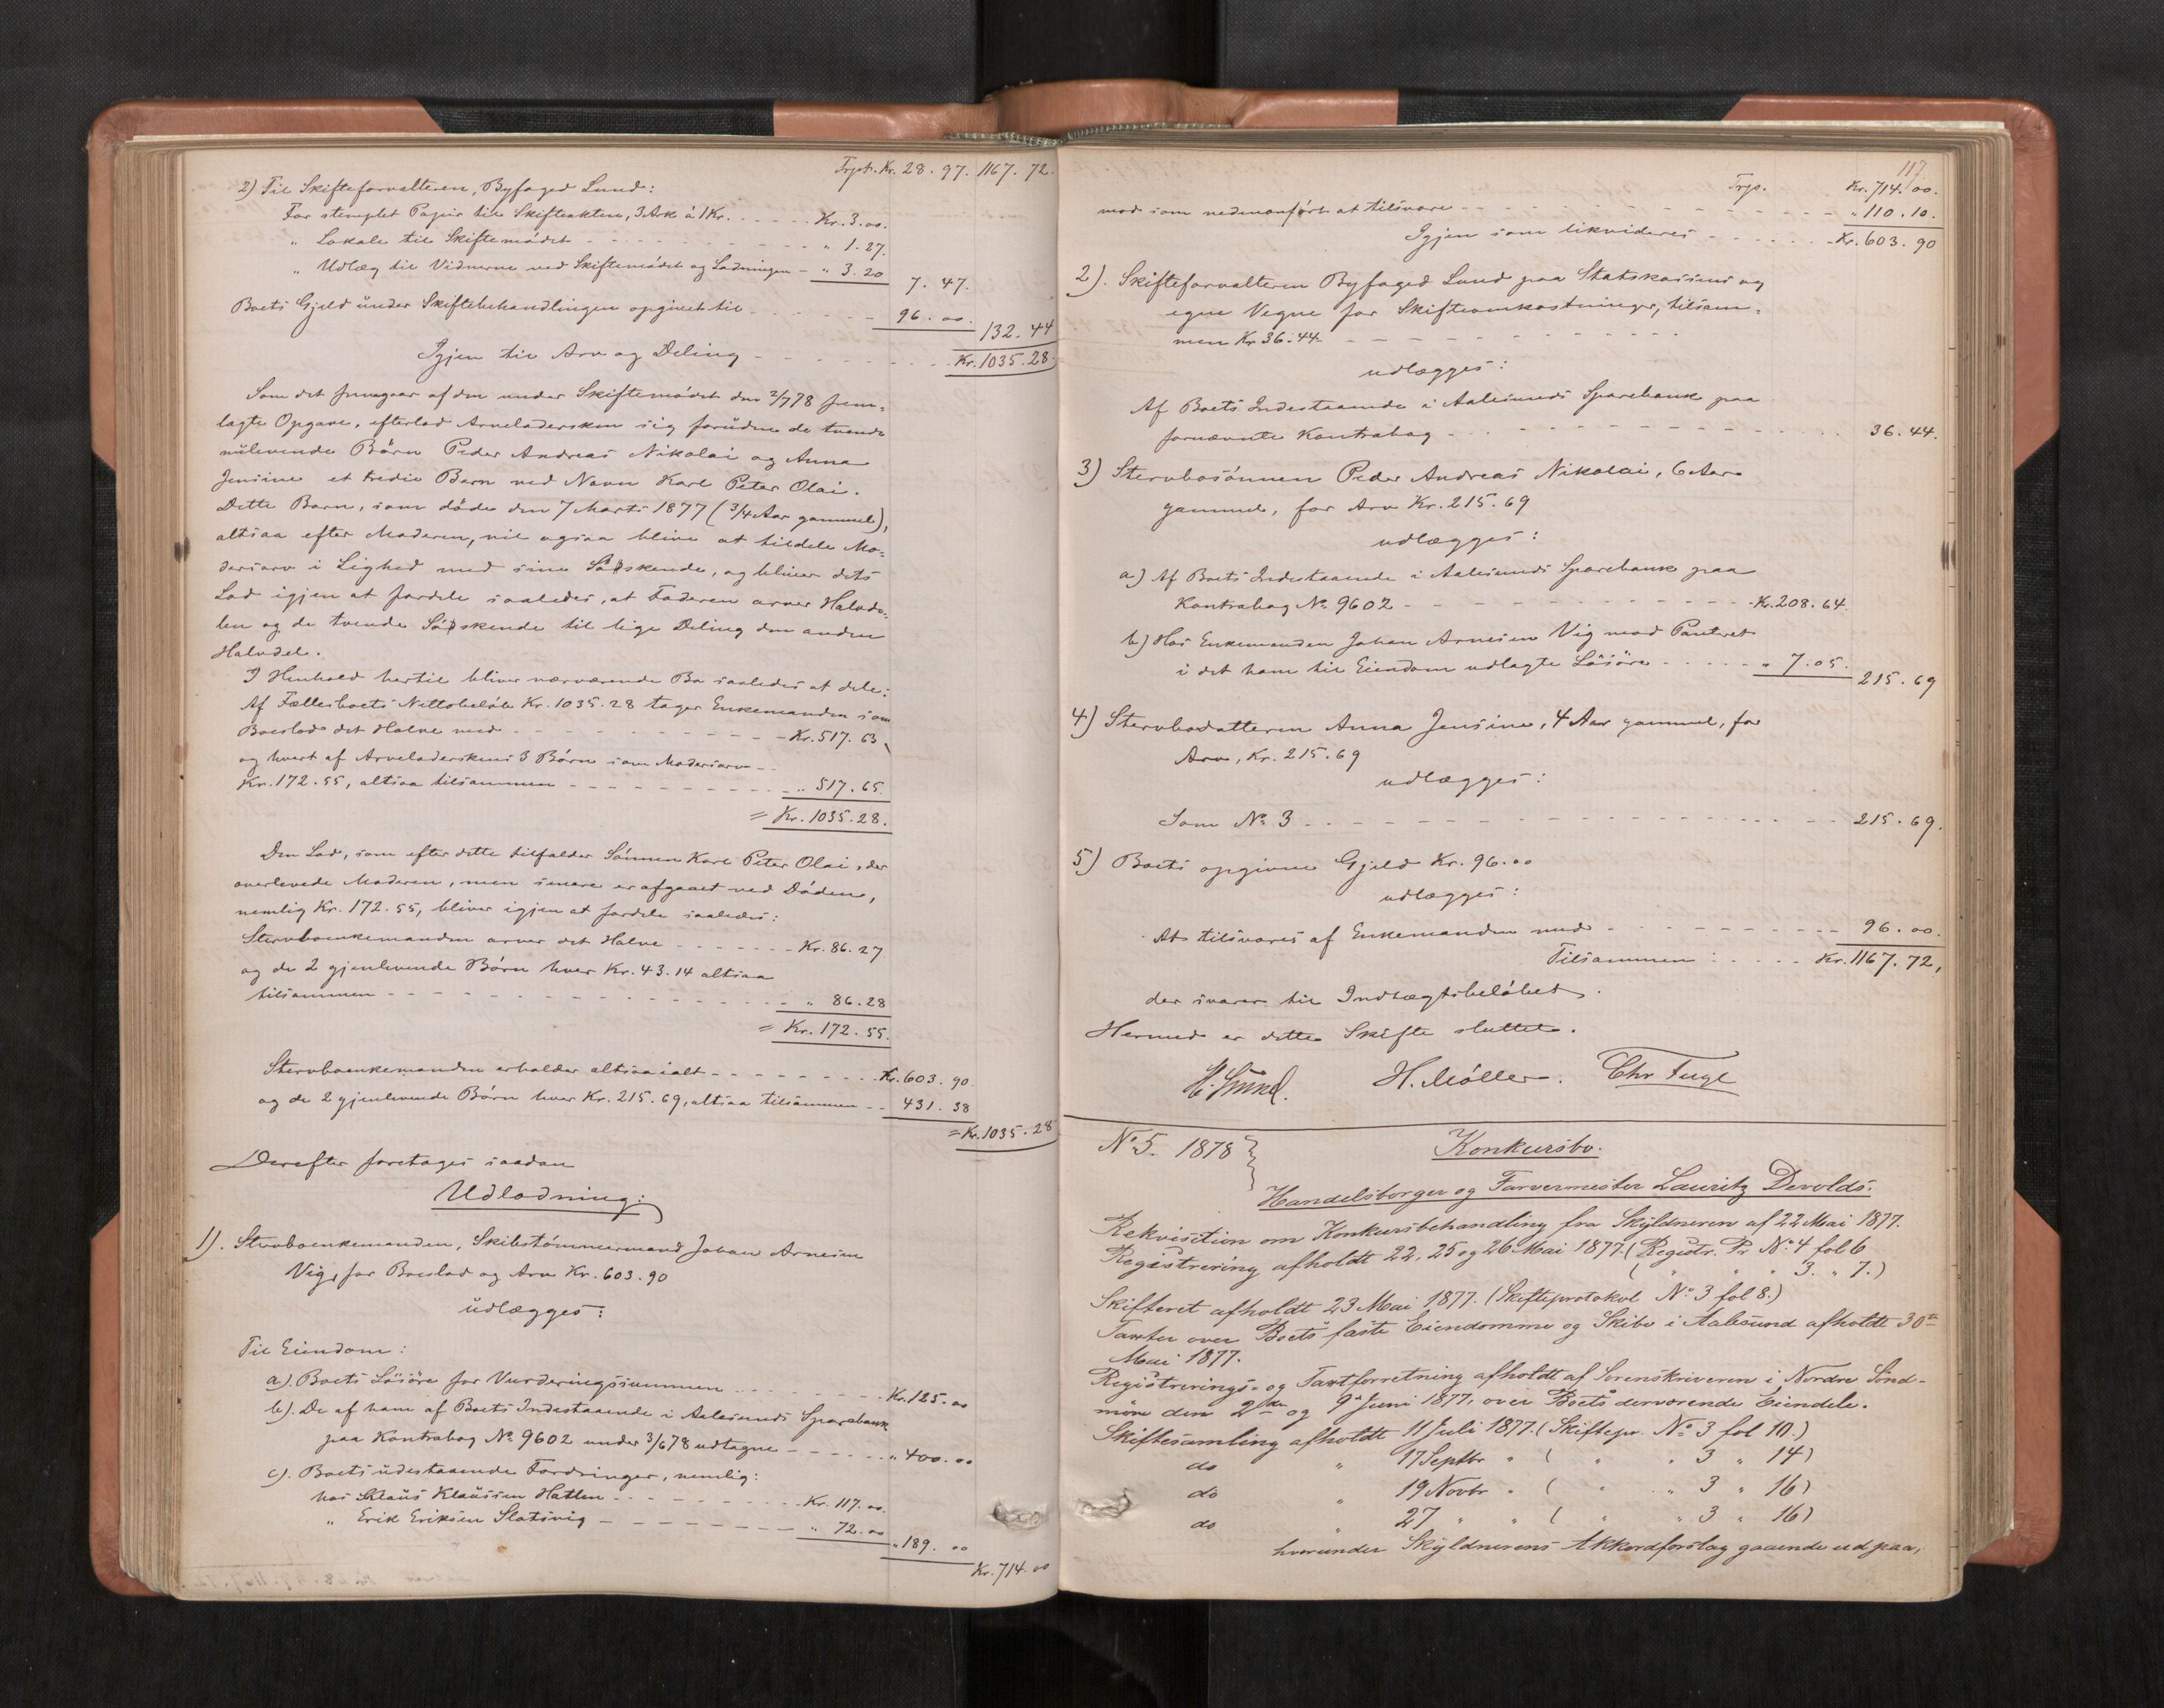 Trpt. Kr. 28. 97. 1167. 72.
2) Til Skifteforvalteren, Byfoged Lund:
For stemplet Papir til Skifteakten, 3 Ark à 1 Kr. - - - Kr. 3. 00.
" Lokale til Skiftemødet - - - " 1. 27.
" Udlæg til Vidnerne ved Skiftemødet og Lodningen - " 3. 20
7. 47.
Boets Gjeld under Skiftebehandlingen opgivet til - - - 96. 00.
132. 44
Igjen til Arv og Deling - - - Kr. 1035. 28.
Som det fremgaar af den under Skiftemødet den 2/7 78 frem=
lagte Opgave, efterlod Arveladersken sig foruden de tvende
nulevende Børn Peder Andreas Nikolai og Anna
Jensine et tredie Barn ved Navn Karl Peter Olai.
Dette Barn, som døde den 7 Marts 1877 (3/4 Aar gammel),
altsaa efter Moderen, vil ogsaa blive at tildele Mo=
dersarv i Lighed med sine Sødskende, og bliver dets
Lod igjen at fordele saaledes, at Faderen arver Halvde=
len og de tvende Sødskende til lige Deling den anden
Halvdel.
I Henhold hertil bliver nærværende Bo saaledes at dele:
Af Fællesboets Nettobeløb Kr. 1035. 28 tager Enkemanden som
Boeslod det Halve med - - - Kr. 517. 63
og hvert af Arveladerskens 3 Børn som Modersarv - -
Kr. 172. 55, altsaa tilsammen - - - " 517. 65.
= Kr. 1035. 28.
Den Lod, som efter dette tilfalder Sønnen Karl Peter Olai, der
overlevede Moderen, men senere er afgaaet ved Døden,
nemlig Kr. 172. 55, bliver igjen at fordele saaledes:
Stervboenkemanden arver det Halve - - - Kr. 86. 27
og de 2 gjenlevende Børn hver Kr. 43. 14 altsaa
tilsammen - - - " 86. 28
= Kr. 172. 55.
Stervboenkemanden erholder altsaa ialt - - - Kr. 603. 90.
og de 2 gjenlevende Børn hver Kr. 215. 69, altsaa tilsammen - - 431. 38
= Kr. 1035. 28
Derefter foretages saadan
Udlodning:
1). Stervboenkemanden, Skibstømmermand Johan Arnesen
Vig, for Boeslod og Arv Kr. 603. 90
udlægges:
Til Eiendom:
a). Boets Løsøre for Vurderingssummen - - - Kr. 125. 00
b). De af ham af Boets Indestaaende i Aalesunds Sparebank
paa Kontrabog No. 9602 under 3/6 78 udtagne - - - " 400. 00
c). Boets udestaaende Fordringer, nemlig:
hos Klaus Klaussen Hatlen - - - Kr. 117. 00.
" Erik Eriksen Slatsvig - - - " 72. 00
" 189. 00
Kr. 714. 00
117.
Trsp. Kr. 714. 00.
mod som nedenanført at tilsvare - - - " 110. 10.
Igjen som likvideres - - - Kr. 603. 90
2). Skifteforvalteren Byfoged Lund paa Statskassens og
egne Vegne for Skifteomkostninger, tilsam=
men Kr. 36. 44. - - -
udlægges:
Af Boets Indestaaende i Aalesunds Sparebank paa
fornævnte Kontrabog - - - 36. 44.
3) Stervbosønnen Peder Andreas Nikolai, 6 Aar
gammel, for Arv Kr. 215. 69
udlægges:
a) Af Boets Indestaaende i Aalesunds Sparebank paa
Kontrabog No. 9602 - - - Kr. 208. 64.
b) Hos Enkemanden Johan Arnesen Vig mod Panteret
i det ham til Eiendom udlagte Løsøre - - - " 7. 05.
215. 69
4) Stervbodatteren Anna Jensine, 4 Aar gammel, for
Arv, Kr. 215. 69
udlægges:
Som No. 3 - - - 215. 69.
5) Boets opgivne Gjeld Kr. 96. 00
udlægges:
At tilsvares af Enkemanden med - - - 96. 00.
Tilsammen: - - - Kr. 1167. 72,
der svarer til Indtægtsbeløbet.
Hermed er dette Skifte sluttet.
H. Møller. Chr Fugl
No 5. 1878
Konkursbo.
Handelsborger og Farvermester Lauritz Devolds.
Rekvisition om Konkursbehandling fra Skyldneren af 22 Mai 1877.
Registrering afholdt 22, 25 og 26 Mai 1877. (Registr. Pr No. 4 fol 6
( " " " 3. " 7.)
Skifteret afholdt 23 Mai 1877. (Skifteprotokol No. 3 fol 8.)
Taxter over Boets faste Eiendomme og Skibe i Aalesund afholdt 30te
Mai 1877.
Registrerings- og Taxtforretning afholdt af Sorenskriveren i Nordre Sønd-
møre den 2den og 9de Juni 1877, over Boets derværende Eiendele.
Skiftesamling afholdt 11 Juli 1877. (Skiftepr. No. 3 fol 10.)
do " 17 Septbr " ( " " 3 " 14)
do " 19 Novbr " ( " " 3 " 16)
do " 27 " " ( " " 3 " 16)
hvorunder Skyldnerens Akkordforslag gaaende ud paa,